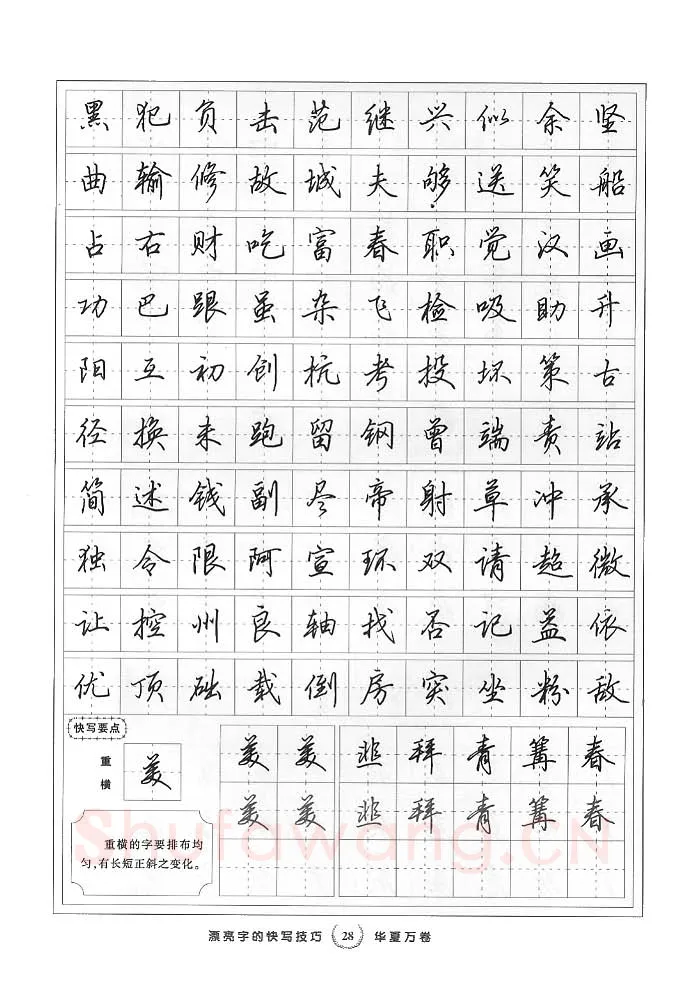 黑犯负击范继兴似余坚
曲输修故城夫够送笑船
占右财吃富春职觉汉画
功巴跟虽杂飞检吸助升
阳互初创抗考投坏策古
径换未跑留钢曾端责站
简述钱副尽帝射草冲承
独令限阿宣环双请超微
让控州良轴找否记益依
优顶础载倒房突坐粉敌
快写要点
重横
美
重横的字要排布均
匀,有长短正斜之变化。
美美韭拜青篝春
美美韭拜青篝春
Shufawang.CN
漂亮字的快写技巧 28 华夏万卷